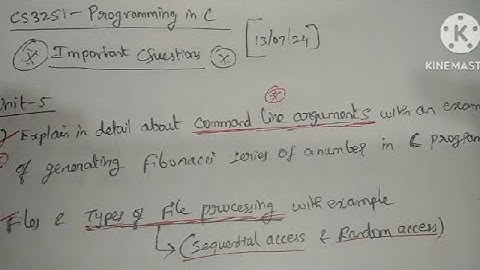 CS3251 - Programming in C
Important Questions
[13/07/24]
KINEMAS
Unit-5
Explain in detail about Command line arguments with an exam
of generating Fibonacci series of a number in C program
Files & Types of File processing with example
(Sequential access & Random access)